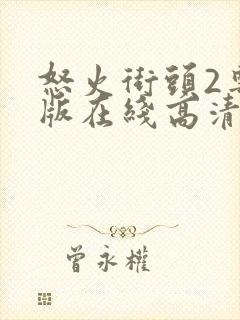 怒火街頭2
版在綫高清
曾永權